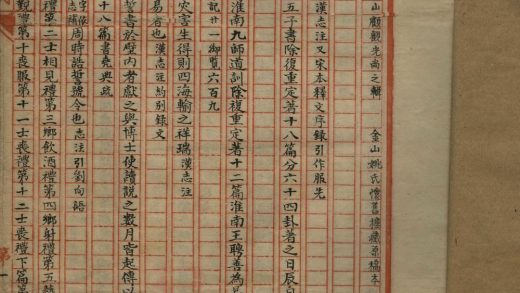 山顧觀光尚之輯 金山姚氏懷舊樓藏原稿本
漢志注又宋本釋文序錄引作服先
五子書除復重定著十八篇分六十四卦著之日辰自
淮南九師道訓除複重定著十二篇淮南王聘善為
記廿一御覽六百九
災害生得則四海輸之祥瑞漢志注
易者也漢志注約別錄文
誓於壁內者獻之與博士使讀說之數月皆起傳以
十八篇書堯典疏
字依志補周時誥誓號令也志注引劉向語
禮第二士相見禮第三鄉飲酒禮第四鄉射禮第五
覲禮第十喪服第十一士喪禮第十二士喪禮下篇